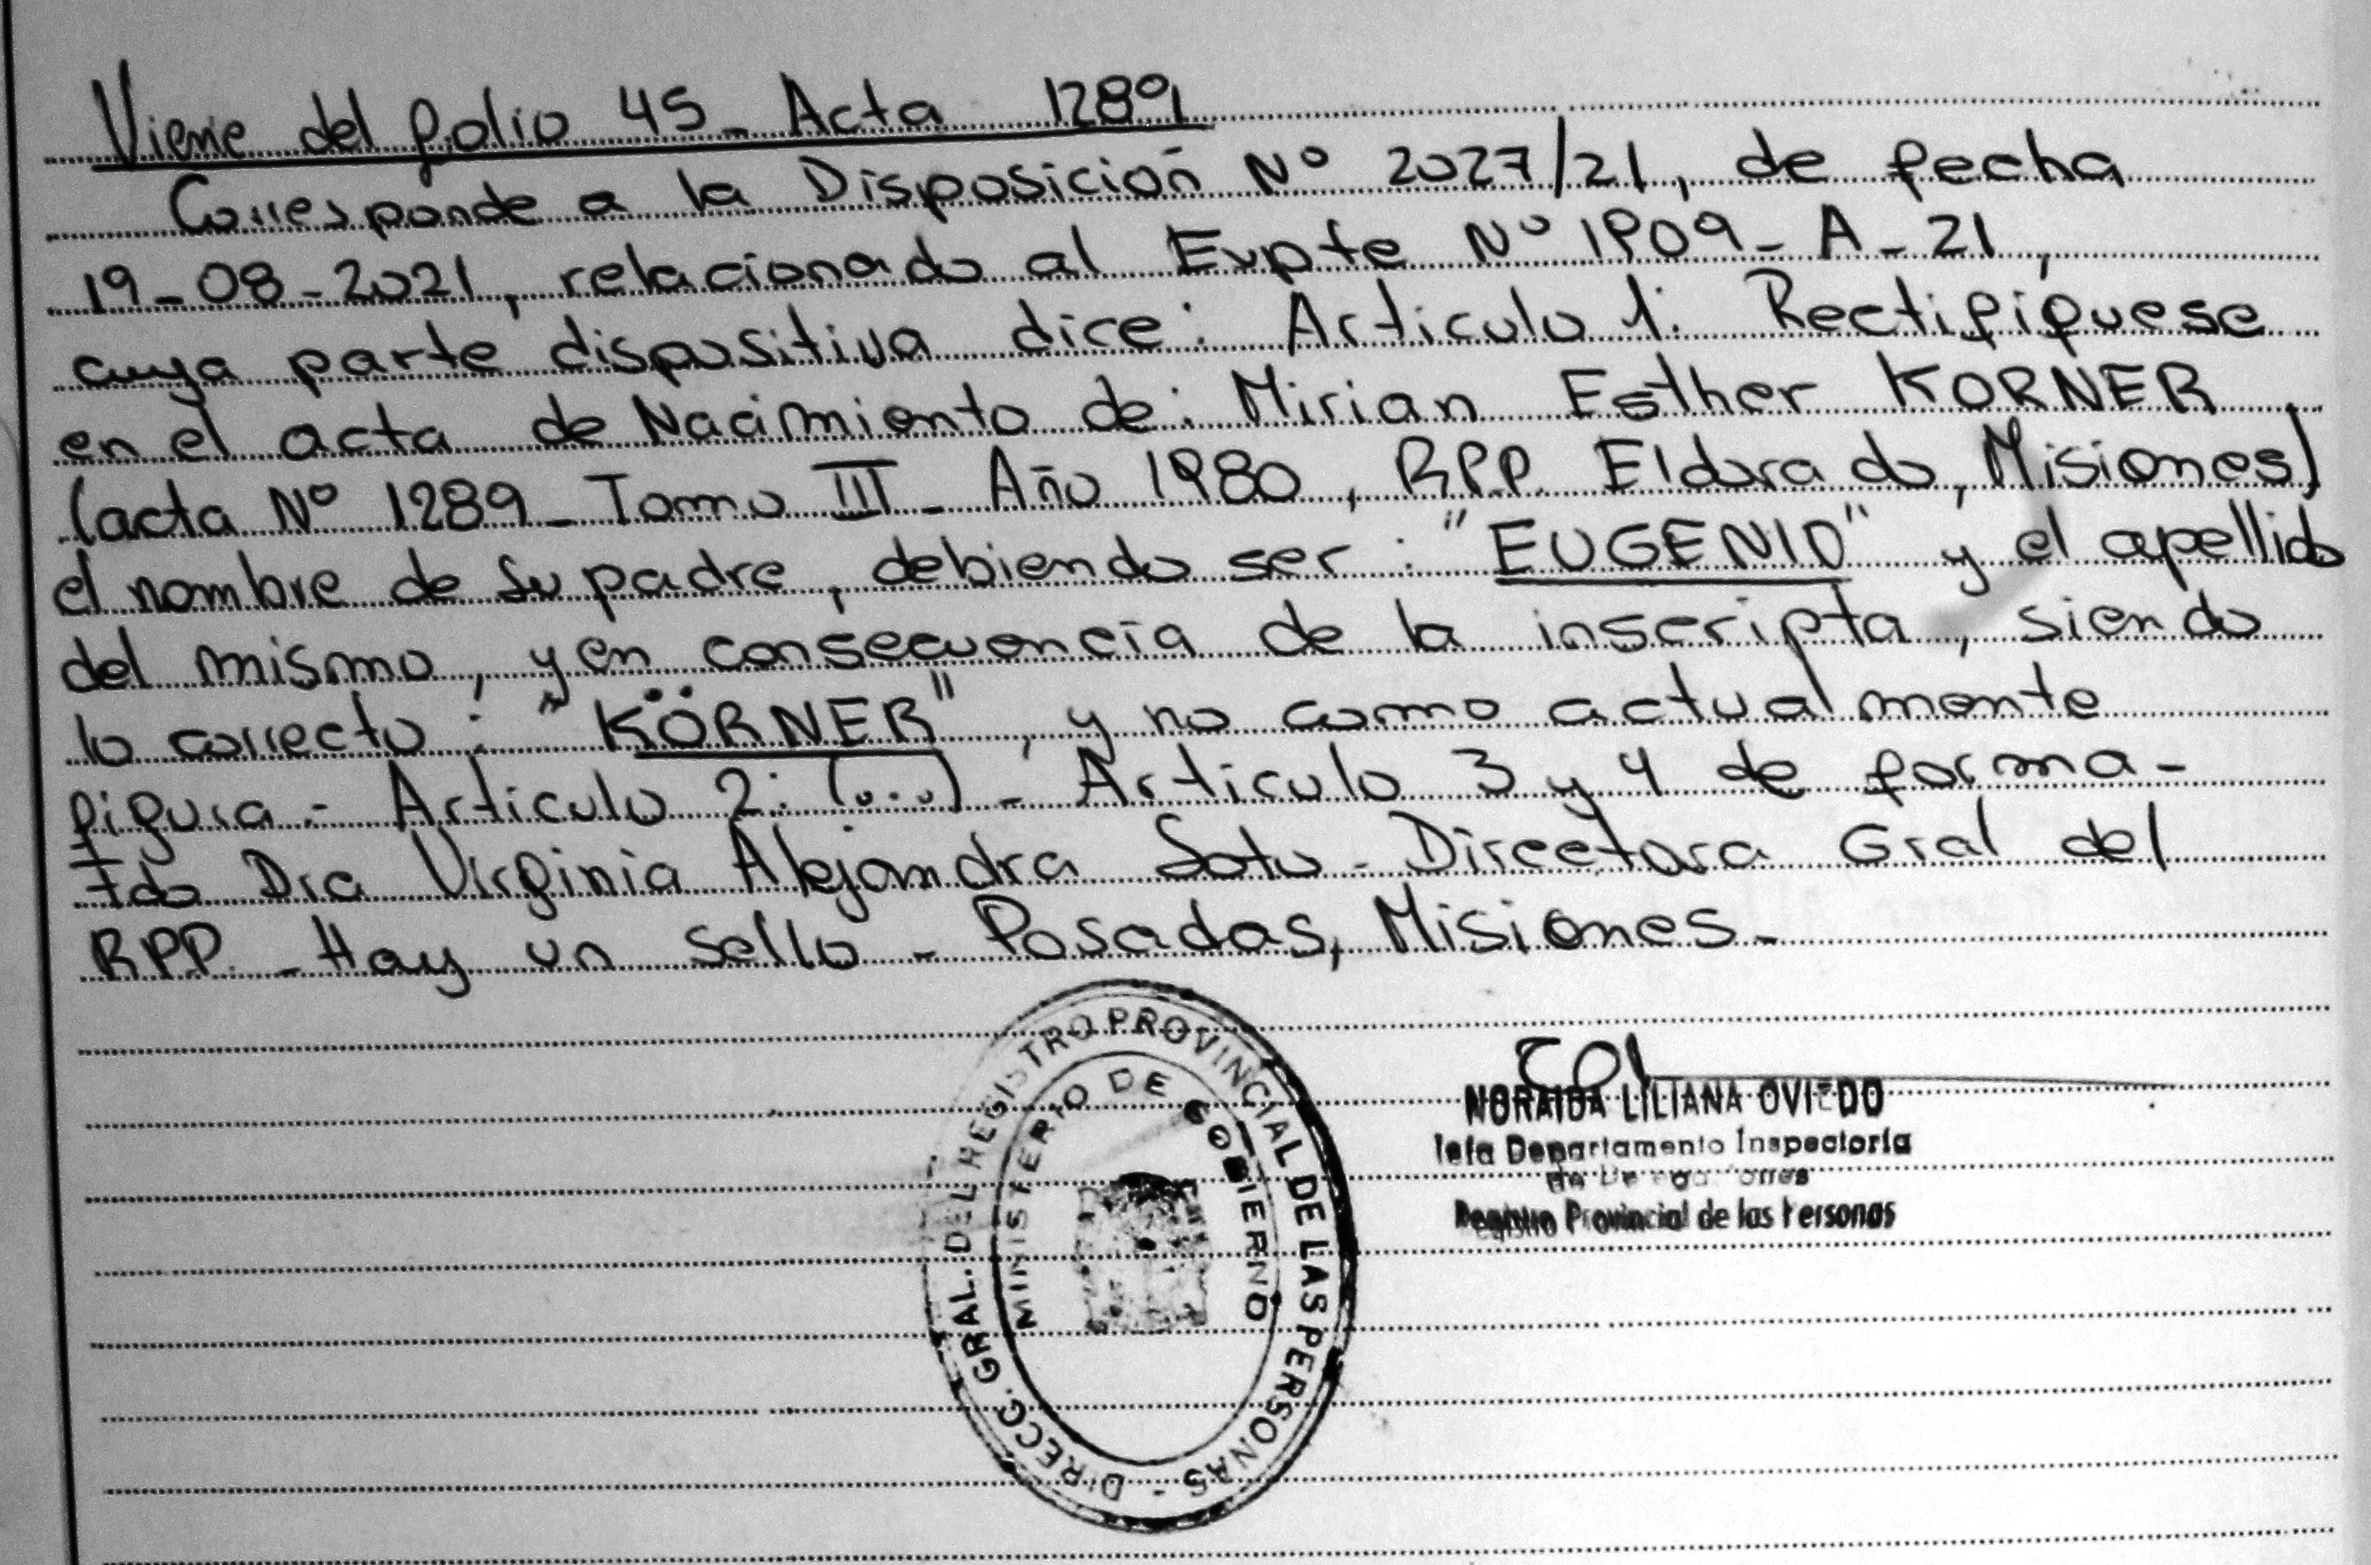 Viene del folio 45_ Acta 1289
Corresponde a la Disposición Nº 2027/21, de fecha
19_08_2021, relacionado al Expte Nº 1909_A_21,
cuya parte dispositiva dice: Articulo 1: Rectifíquese
en el acta de Nacimiento de: Mirian Esther KORNER,
(acta Nº 1289_Tomo III_ Año 1980, RPP. Eldorado, Misiones)
el nombre de su padre, debiendo ser: "EUGENIO" y el apellido
del mismo, y en consecuencia de la inscripta, siendo
lo correcto: "KÖRNER", y no como actualmente
figura.- Articulo 2: (...)_ Articulo 3 y 4 de forma-
Fdo Dra Virginia Alejandra Soto_ Directora Gral del
RPP_ Hay un sello_ Posadas, Misiones_
DIRECC. GRAL. DEL REGISTRO PROVINCIAL DE LAS PERSONAS -
MINISTERIO DE GOBIERNO
NORAIDA LILIANA OVIEDO
Jefa Departamento Inspectoría
de
Registro Provincial de las Personas